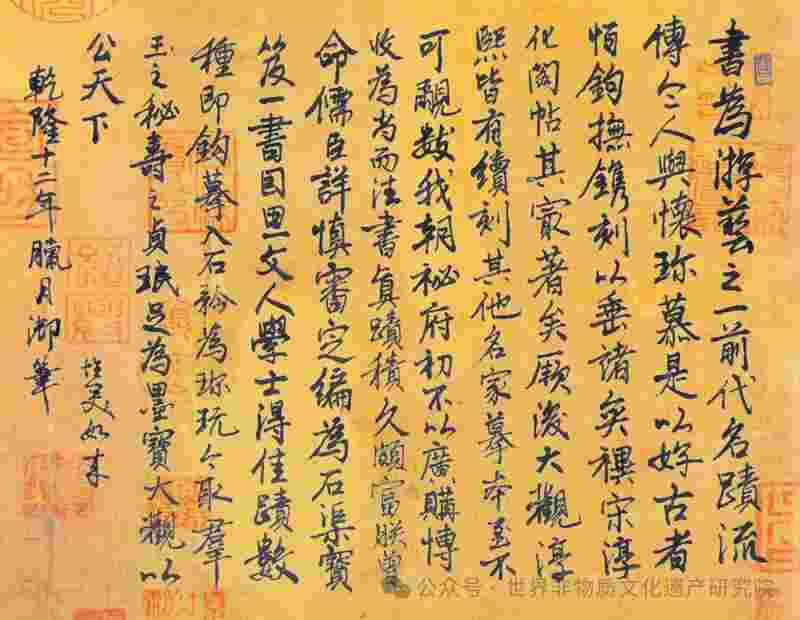 書為游藝之一前代名蹟流
傳令人與懷珍慕是以好古者
恆鉤撫鐫刻以垂諸奕禩宋淳
化閣帖其冣著矣厥後大觀淳
熙皆有續刻其他名家摹本至不
可覼數我朝祕府初不以廣購博
收為尚而法書真蹟積久頗富朕曾
命儒臣詳慎審定編為石渠寶
笈一書因思文人學士得佳蹟數
種即鉤摹入石矜為珍玩今取羣
玉之秘壽之貞珉足為墨寶大觀以
公天下
乾隆十二年臘月御筆
如来
公众号·世界非物质文化遗产研究院